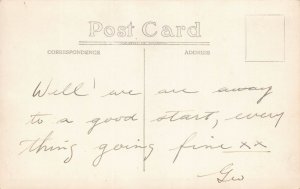 Post Card
CORRESPONDENCE ADDRESS
Well! we are away
to a good start, every
thing going fine xx
Geo